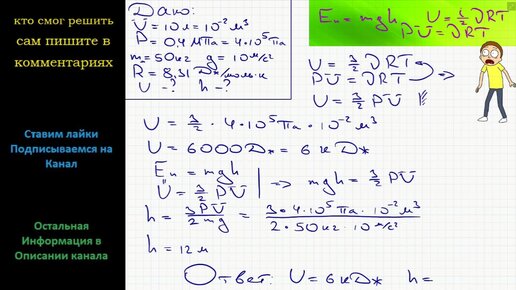 кто смог решить
сам пишите в
комментариях
Ставим лайки
Подписываемся на
Канал
Остальная
Информация в
Описании канала
Дано:
V = 10 л = 10⁻² м³
P = 0,4 МПа = 4•10⁵ Па
m = 50 кг g = 10 м/с²
R = 8,31 Дж/моль•к
U - ? h - ?
Eп = mgh U = i/2 νRT
PV = νRT
U = 3/2 νRT
PV = νRT
=>
U = 3/2 PV
U = 3/2 • 4•10⁵ Па • 10⁻² м³
U = 6000 Дж = 6 кДж
Eп = mgh
U = 3/2 PV
=> mgh = 3/2 PV
h = 3PV/2mg = 3•4•10⁵ Па • 10⁻² м³/2•50 кг • 10 м/с²
h = 12 м
Ответ: U = 6 кДж h =